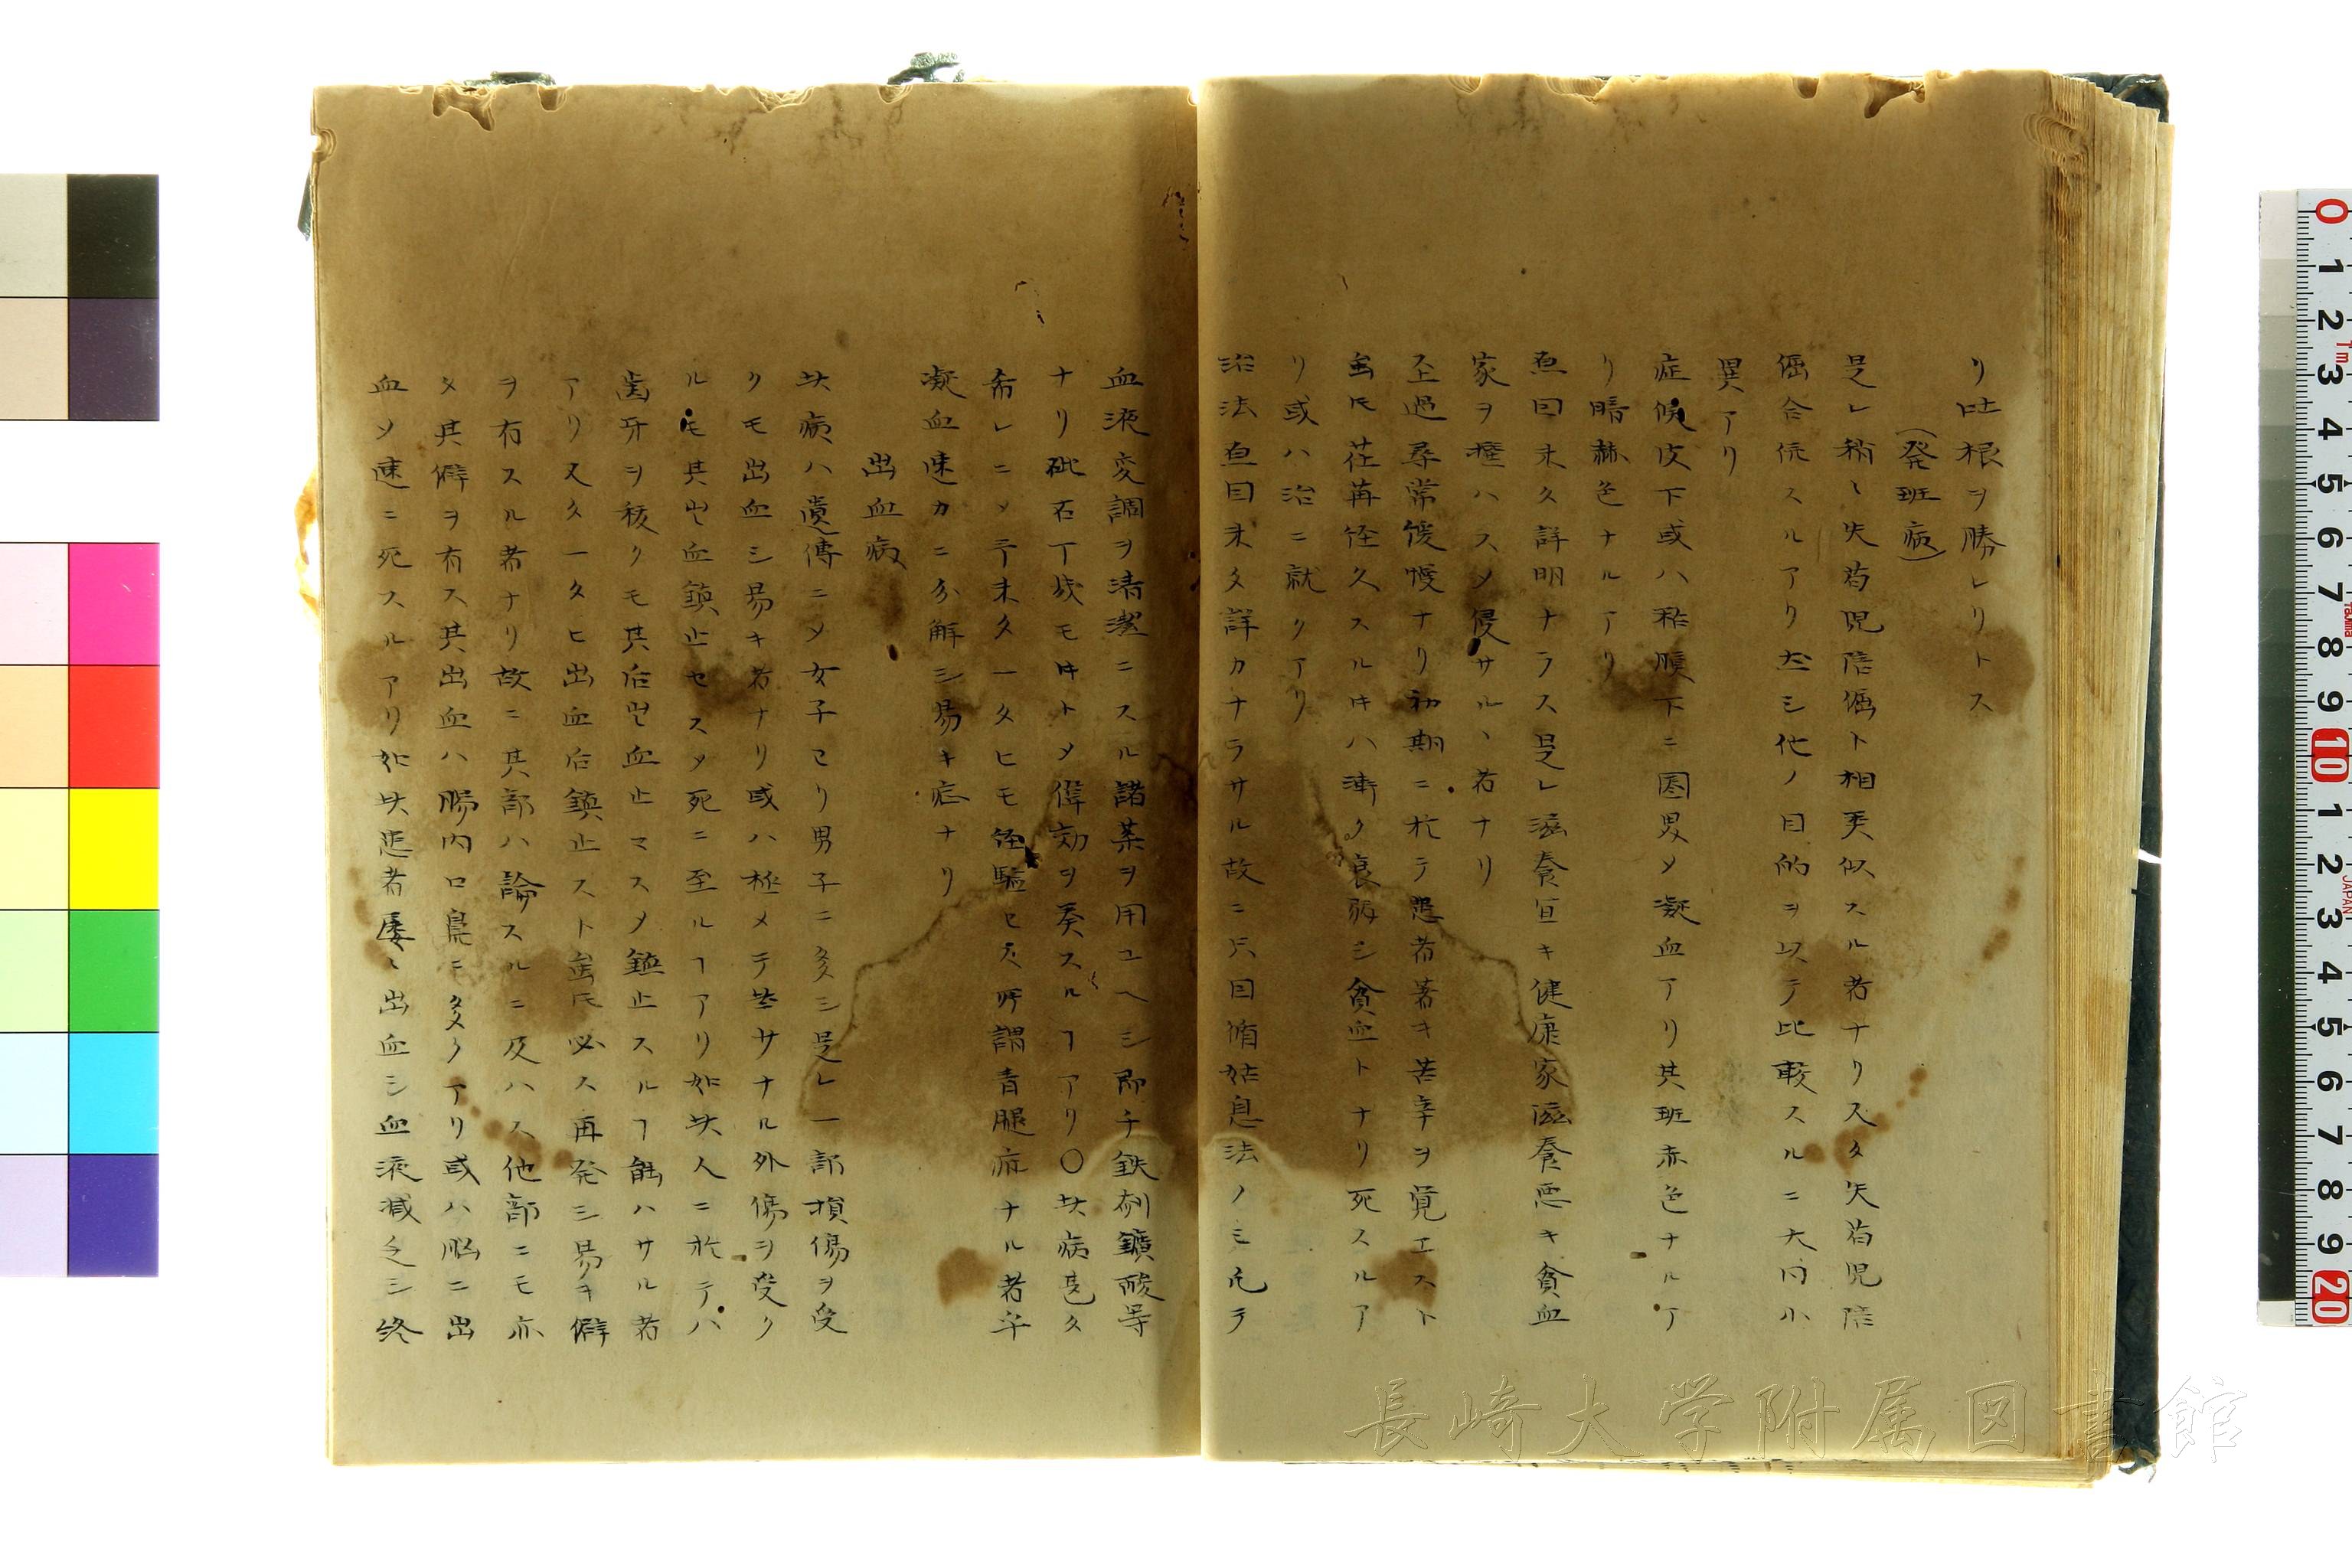 リ吐根ヲ勝レリトス
(発班病)
是レ稍〻失苟児陪偓ト相类似スル者ナリ又タ失苟児陪
偓合併スルアリ然シ他ノ目的ヲ以テ比較スルニ大同小
異アリ
症候皮下或ハ粘膜下ニ圏界メ凝血アリ其班赤色ナルア
リ暗赫色ナルアリ
原因未タ詳明ナラス是レ滋養宜キ健康家滋養悪キ貧血
家ヲ擇ハスメ侵サルヽ者ナリ
圣過尋常緩慢ナリ初期ニ於テ患者著キ苦辛ヲ覚エスト
虽𪜈荏苒経久スル时ハ漸ク衰弱シ貧血トナリ死スルア
リ或ハ治ニ就クアリ
治法原因未タ詳カナラサル故ニ只因脩姑息法ノミ凡テ
血液変調ヲ清潔ニスル諸薬ヲ用ユヘシ即チ鉄剤鑛酸等
ナリ砒石丁幾モ时トメ偉効ヲ奏スルヿアリ〇此病甚タ
希レニメ予未タ一タヒモ経驗セス所謂青腿症ナル者卒
凝血速カニ分解シ易キ症ナリ
出血病
此病ハ遺傳ニメ女子ヨリ男子ニ多シ是レ一部損傷ヲ受
クモ出血シ易キ者ナリ或ハ極メテ些サナル外傷ヲ受ク
ルモ其出血鎮止セスメ死ニ至ルヿアリ如此人ニ於テハ
歯牙ヲ抜クモ其后出血止マスメ鎮止スルヿ能ハサル者
アリ又タ一タヒ出血后鎮止スト虽𪜈必ス再発シ易キ僻
ヲ有スル者ナリ故ニ其部ハ論スルニ及ハス他部ニモ亦
タ其僻ヲ有ス其出血ハ腸内口鼻ニ多クアリ或ハ脳ニ出
血メ速ニ死スルアリ如此患者屡〻出血シ血液減乏シ終
長崎大学附属図書館